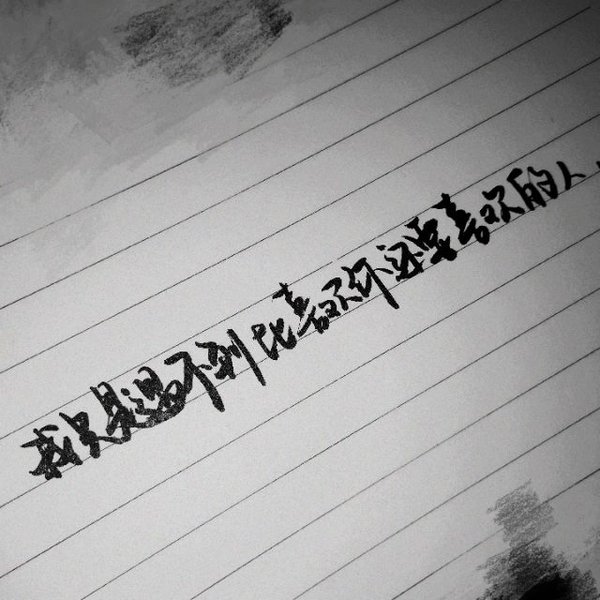 我只是遇不到比喜欢你还要喜欢的人.